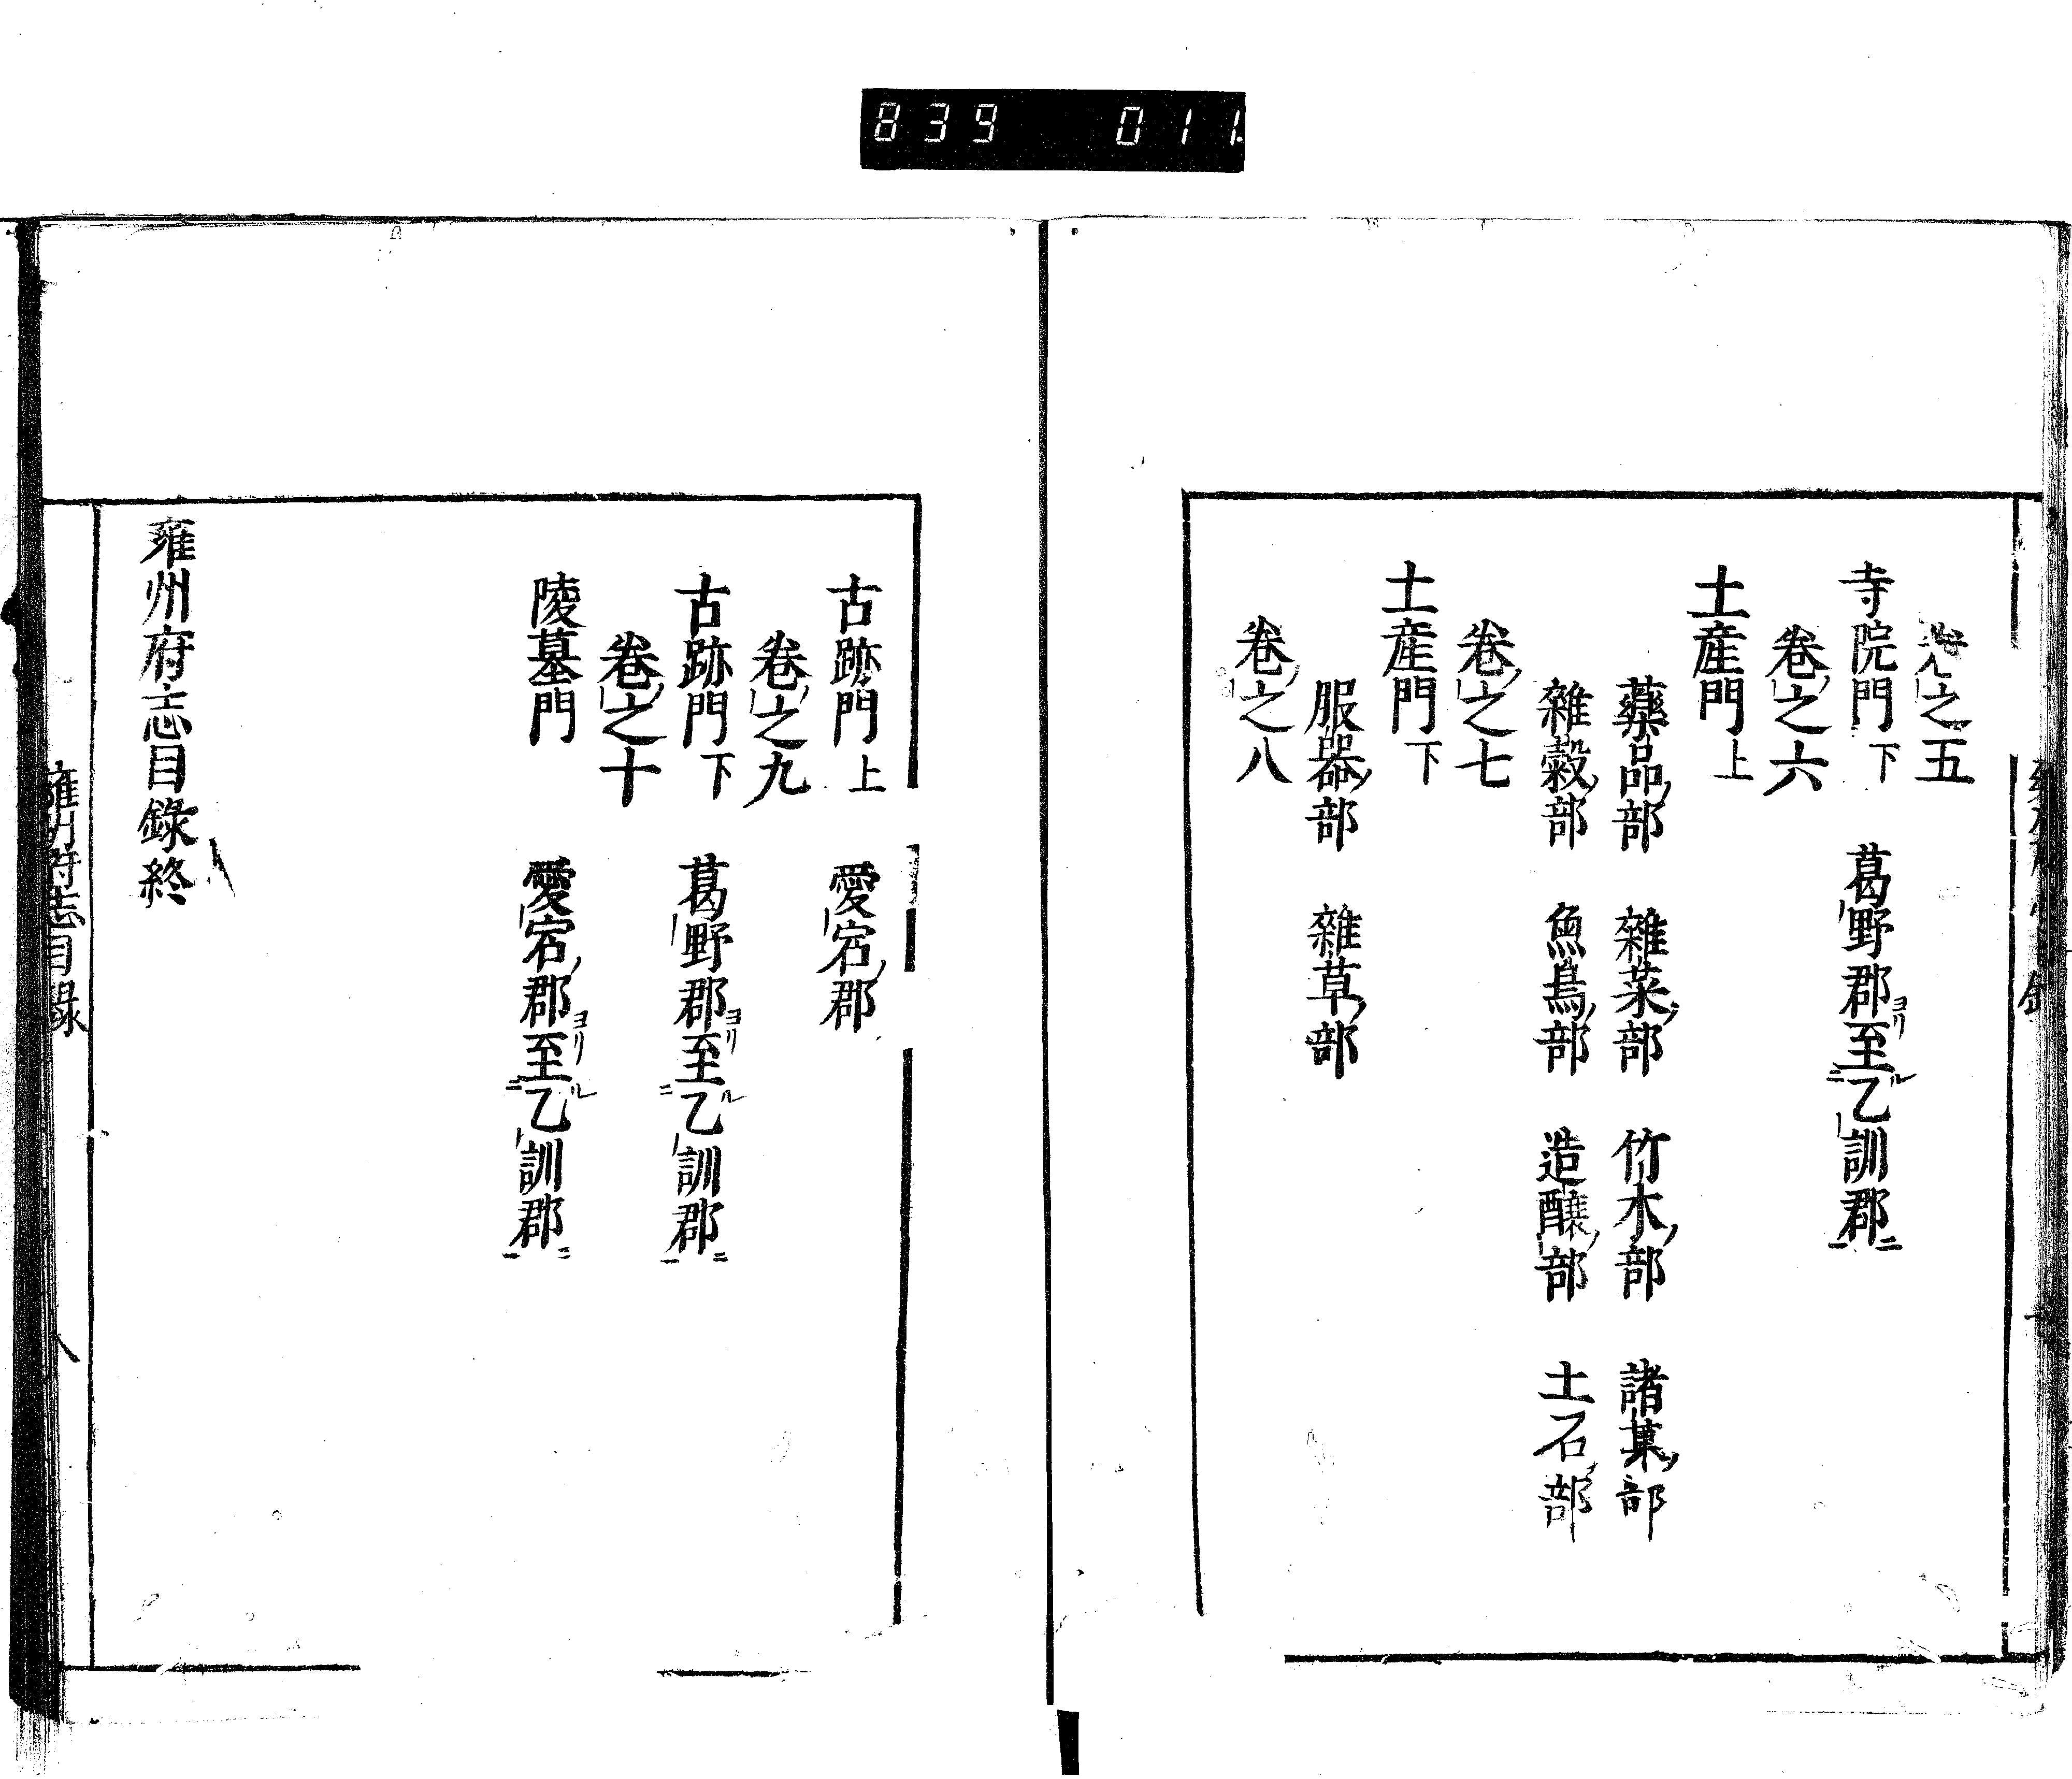 839 011
卷之五
寺院門下 葛野郡ヨリ至ルニ乙訓郡ニ
卷之六
土産門上
藥品部 雜菜部 竹木部 諸菓部
雜穀部 魚鳥部 造釀部 土石部
卷之七
土産門下
服器部 雜草部
卷之八
古跡門上 愛宕郡
卷之九
古跡門下 葛野郡ヨリ至ルニ乙訓郡ニ
卷之十
陵墓門 愛宕郡ヨリ至ルニ乙訓郡ニ
雍州府志目錄終
雍州府志目錄 八